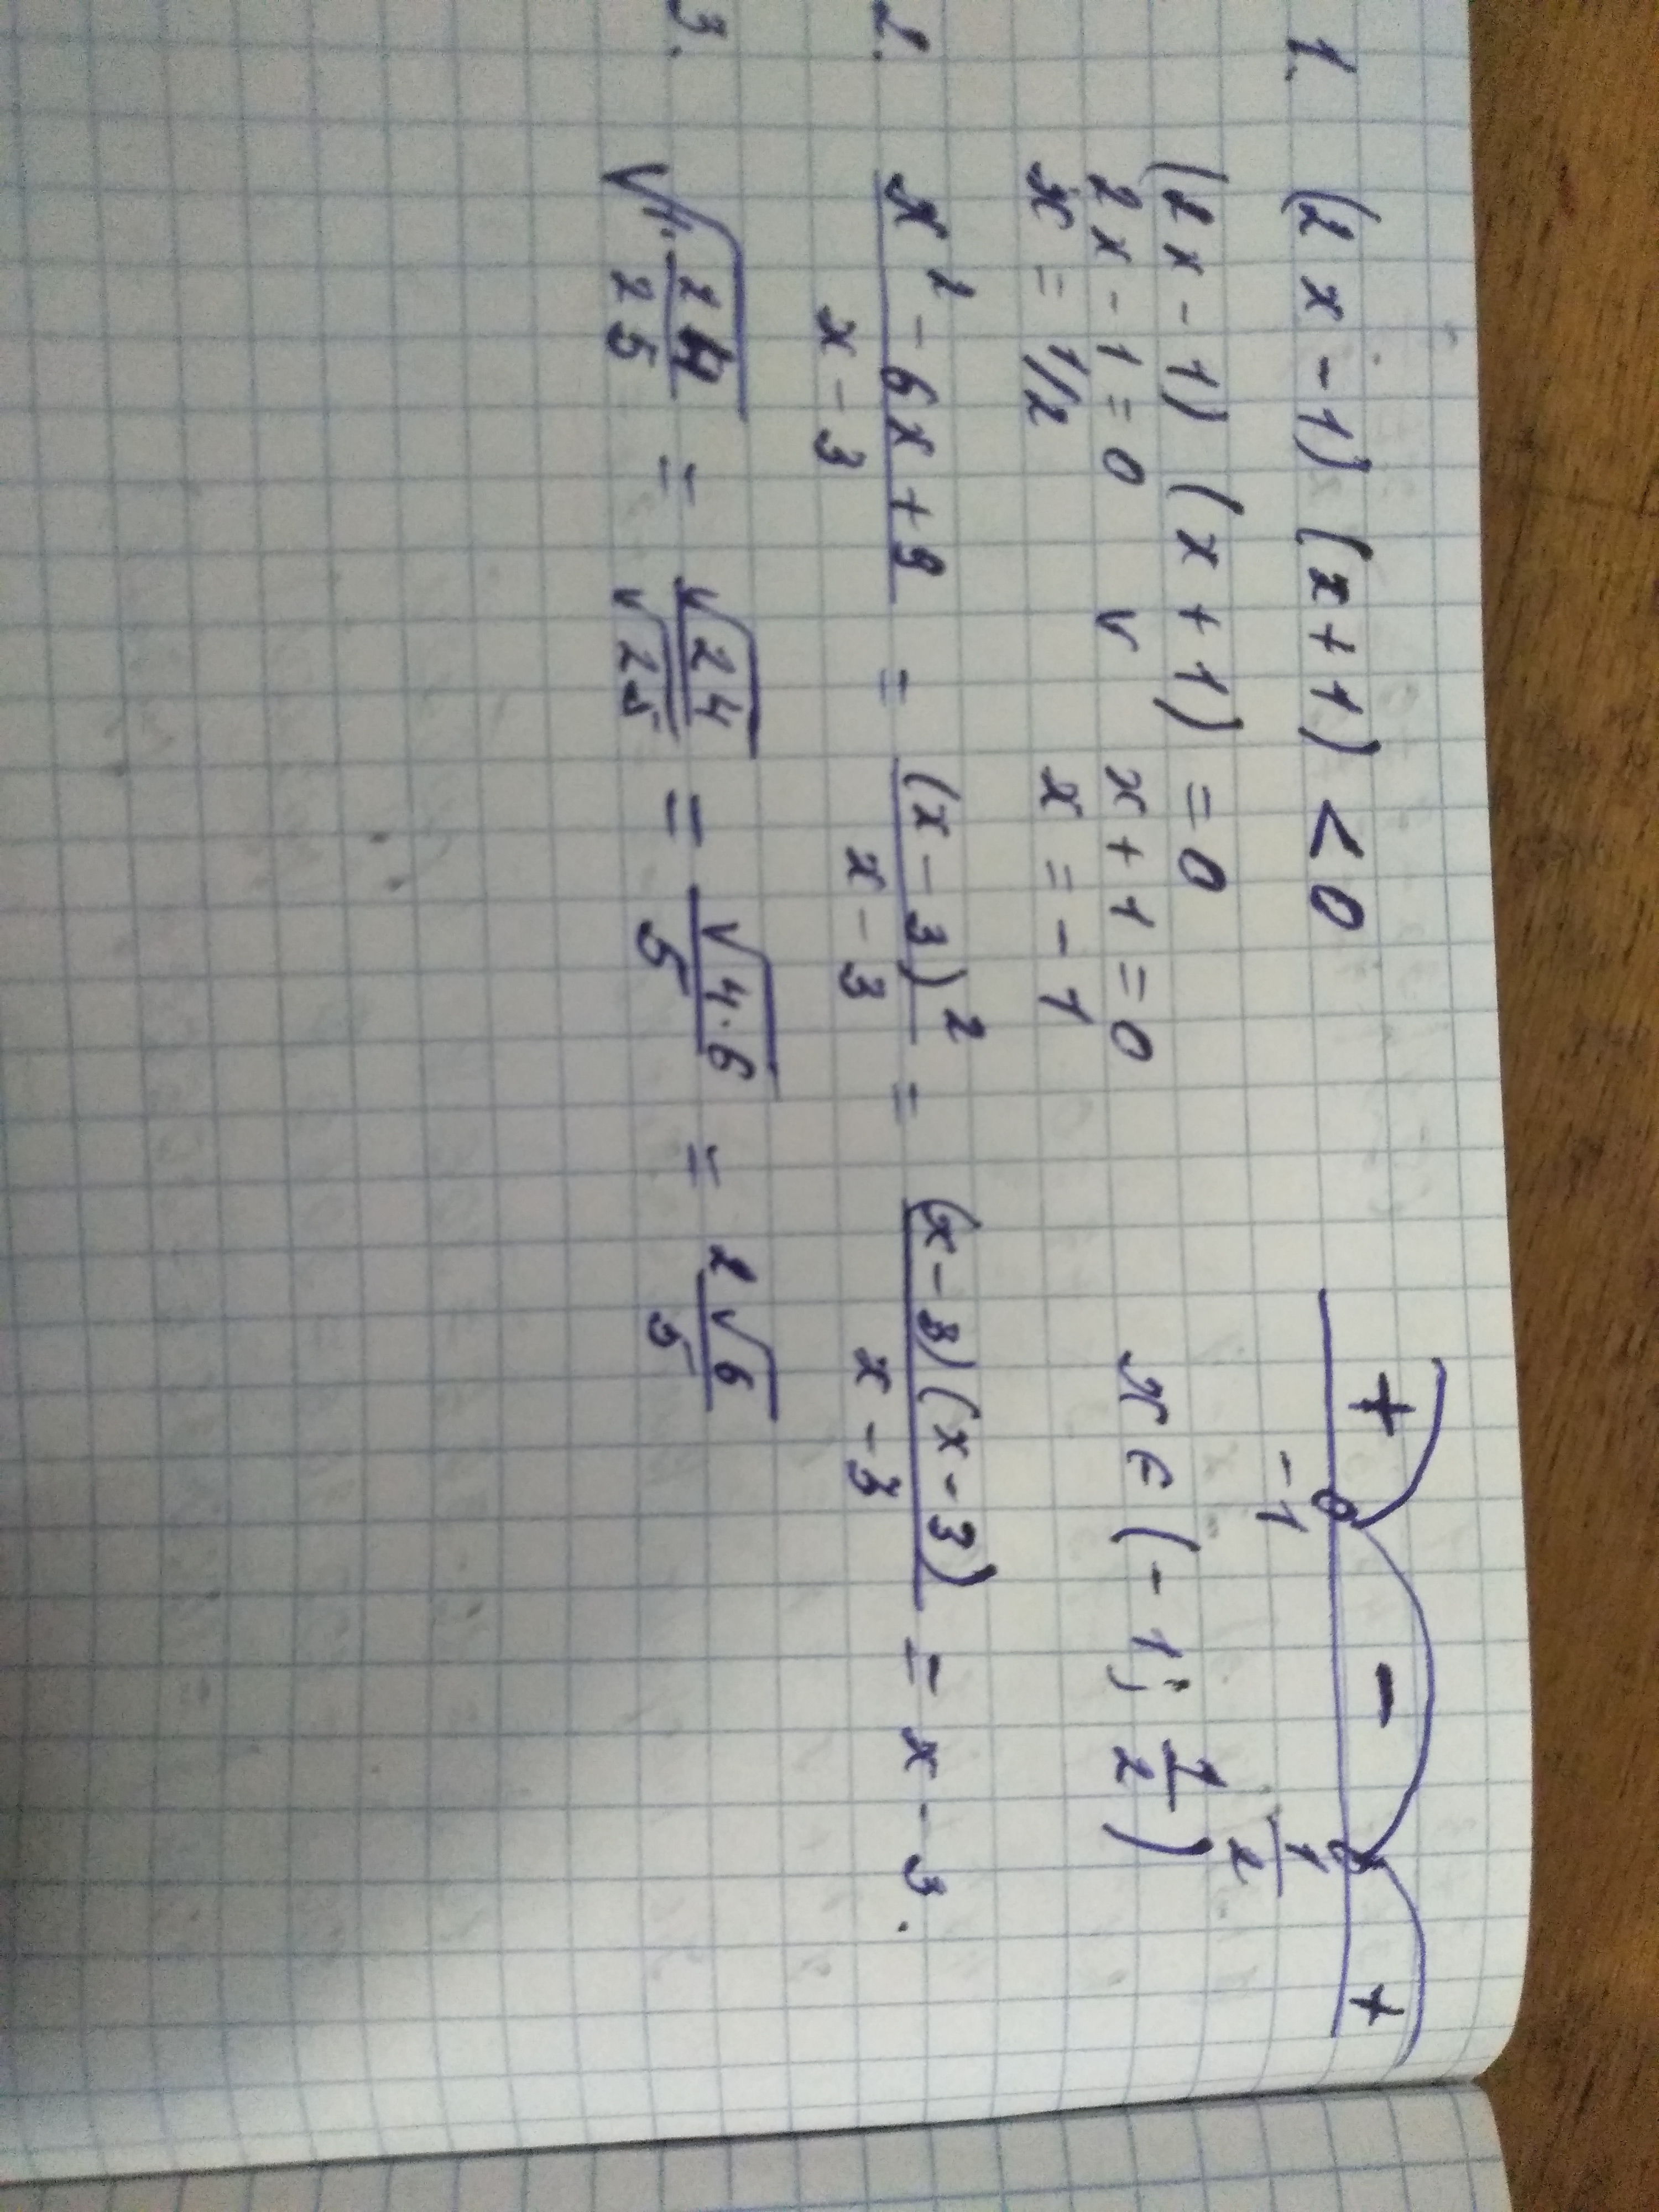 1. (2x-1)(x+1)<0
+ - +
-1 1/2
(2x-1)(x+1)=0
2x-1=0 v x+1=0
x=1/2 x=-1
x∈(-1; 1/2)
2. (x²-6x+9)/(x-3) = (x-3)²/(x-3) = (x-3)(x-3)/(x-3) = x-3.
3. = √24/√25 = √(4·6)/5 = 2√6/5